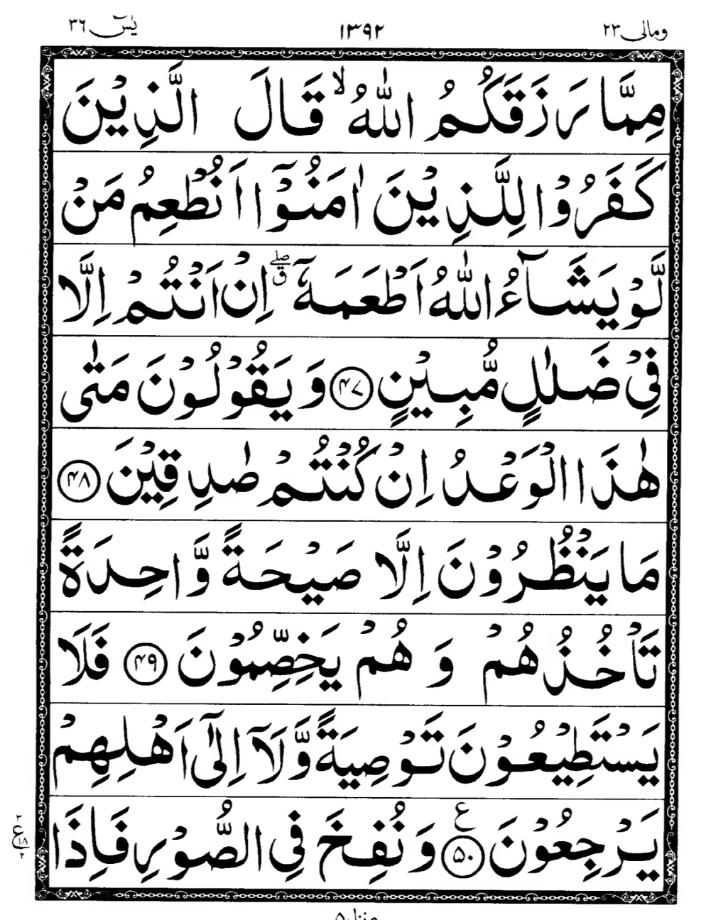 ومالی ۲۳ ۱۳۹۲ یٰسٓ ۳۶
مِمَّا رَزَقَكُمُ اللّٰهُ ۙ قَالَ الَّذِيْنَ
كَفَرُوْا لِلَّذِيْنَ اٰمَنُوْۤا اَنُطْعِمُ مَنْ
لَّوْ يَشَآءُ اللّٰهُ اَطْعَمَهٗۤ ۖق اِنْ اَنْتُمْ اِلَّا
فِيْ ضَلٰلٍ مُّبِيْنٍ ﴿۴۷﴾ وَ يَقُوْلُوْنَ مَتٰى
هٰذَا الْوَعْدُ اِنْ كُنْتُمْ صٰدِقِيْنَ ﴿۴۸﴾
مَا يَنْظُرُوْنَ اِلَّا صَيْحَةً وَّاحِدَةً
تَاْخُذُهُمْ وَ هُمْ يَخِصِّمُوْنَ ﴿۴۹﴾ فَلَا
يَسْتَطِيْعُوْنَ تَوْصِيَةً وَّلَاۤ اِلٰۤى اَهْلِهِمْ
يَرْجِعُوْنَ ﴿۵۰﴾ ع وَ نُفِخَ فِي الصُّوْرِ فَاِذَا
۳ ع ۱۸ ۲
منزل ۵